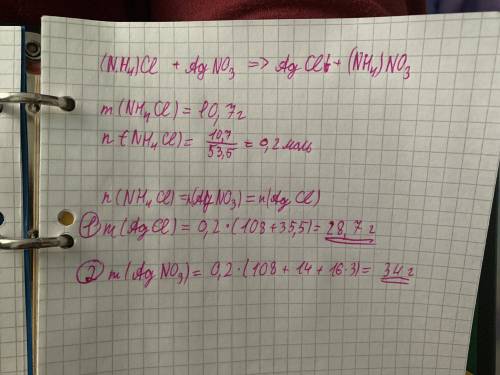 (NH₄)Cl + AgNO₃ => AgCl↓ + (NH₄)NO₃
m(NH₄Cl) = 10,7г
n(NH₄Cl) = 10,7/53,5 = 0,2 моль
n(NH₄Cl) = n(AgNO₃) = n(AgCl)
① m(AgCl) = 0,2·(108+35,5) = 28,7 г
② m(AgNO₃) = 0,2·(108+14+16·3) = 34 г